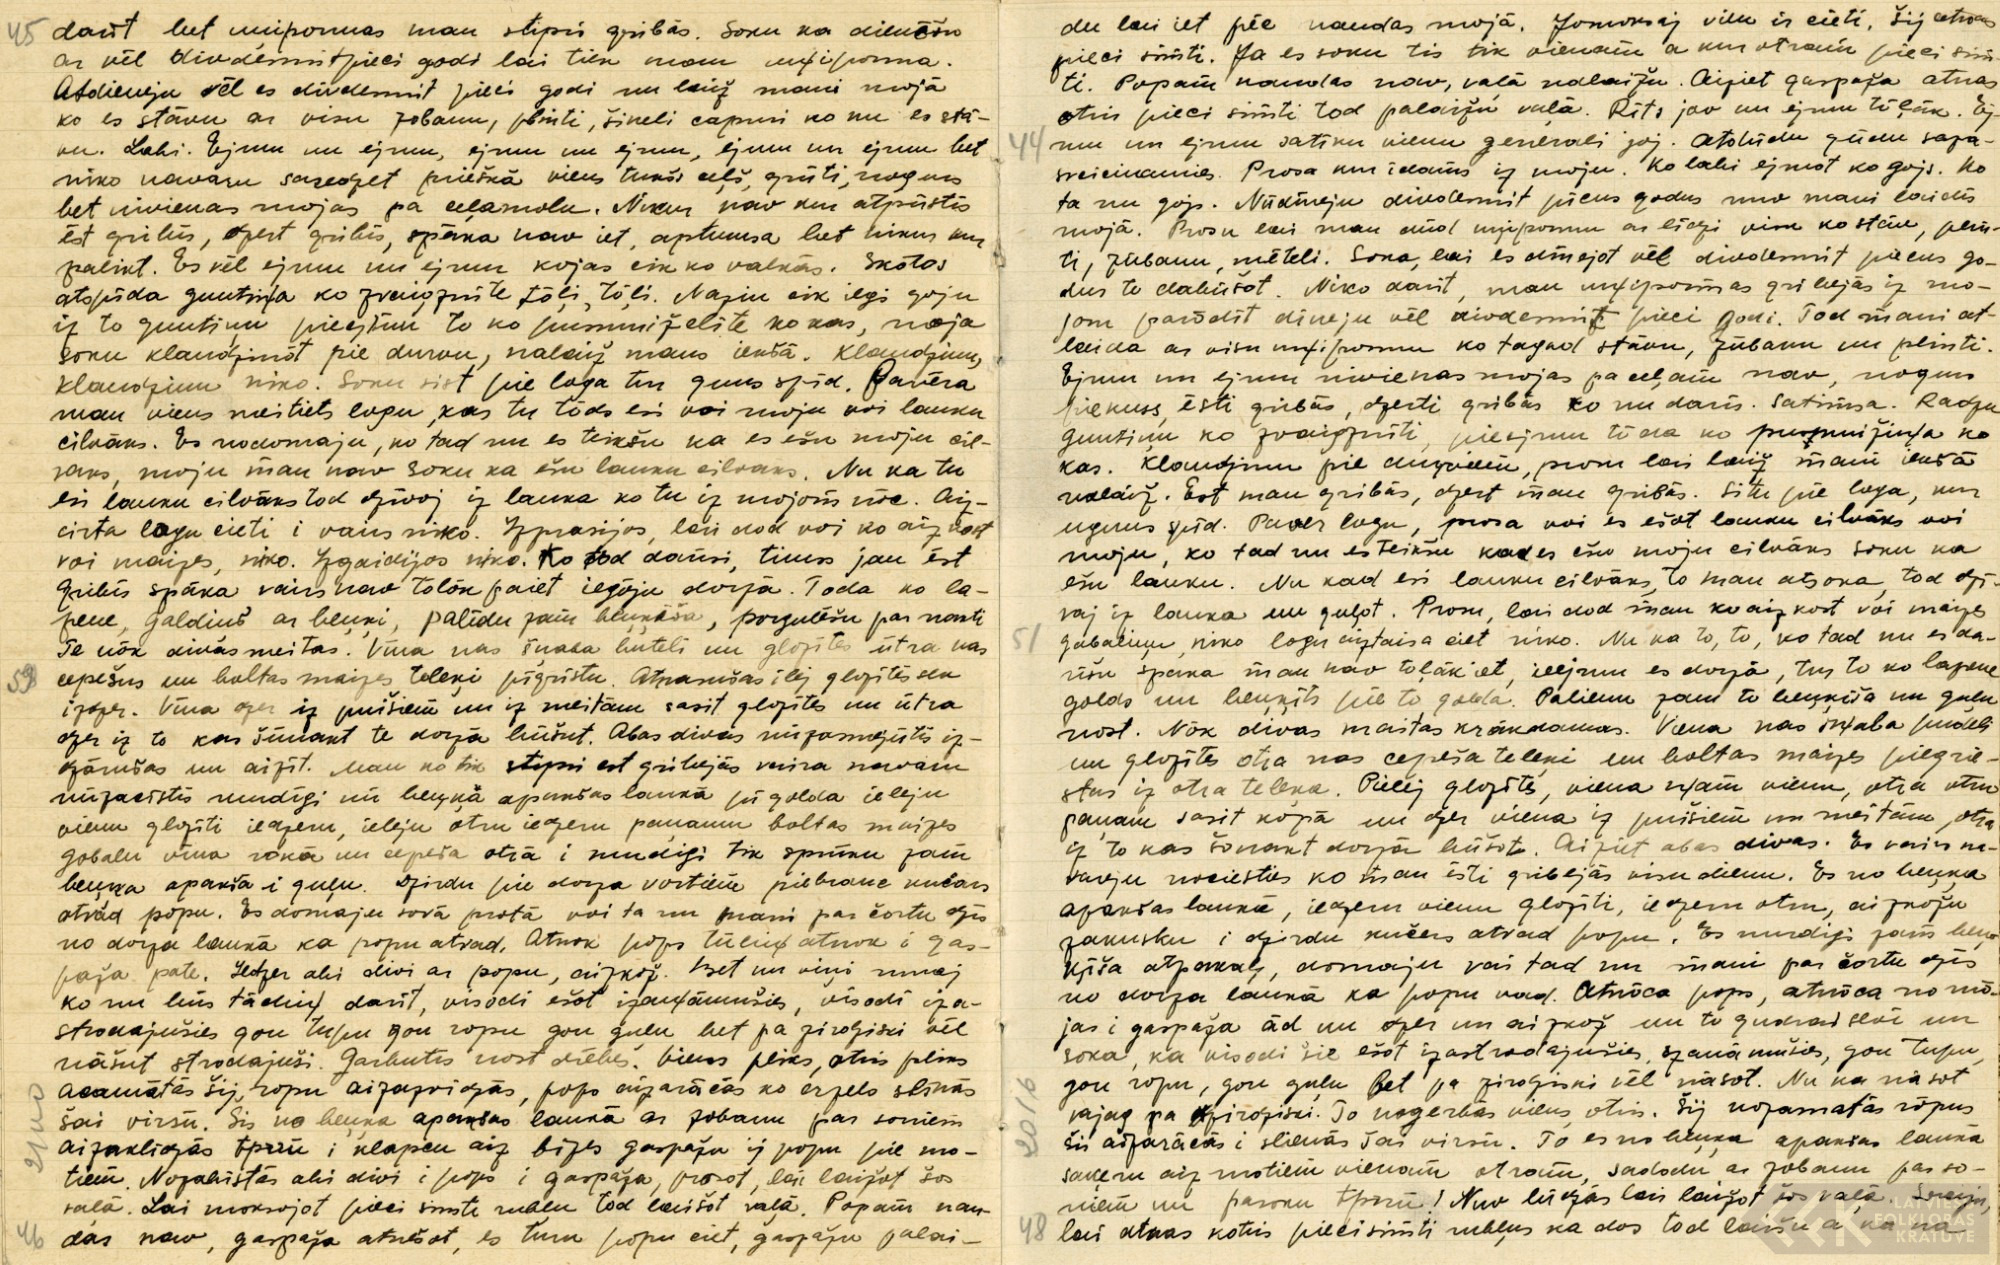 45 darīt bet uniformas man stipri gribās. Soku ka dienēšu
ar vēl divdesmitpieci godi lai tiek man uniforma.
Atdieneju vēl es divdesmit pieci godi nu laiž mani mojā
ko es stāvu ar visu zobanu, plinti, šineli capuri ko nu es stā-
vu. Labi. Ejmu un ejmu, ejmu un ejmu, ejmu un ejmu bet
niko navaru saredzet priekšā viens tukšs ceļš, grūti, noguris
bet nivienas mojas pa ceļamolu. Nikur nav kur atpūstīs
ēst gribūs, dzert gribūs, spāka nav iet, aptumsa bet nikur kur
palikt. Es vēl ejmu un ejmu kojas cik ko valkās. Skotos
atspīda guntiņa ko zvaigznīte tōļi, tōļi. Nazin cik ilgi goju
iz to guntiņu pieejmu to ko pummižeļite ko kas, moja
soku klaudzinōt pie durvu, nalaiž mans iekšā. Klaudzinu,
klaudzinu niko. Soku sist pie loga tur guns spīd. Pavēra
man viens meitiets logu, kas tu tōds esi voi moju voi lauku
cilvāks. Es nodomaju, ko tad nu es teikšu ka es ešu moju cil-
vaks, moju man nav soku ka ešu lauku cilvaks. Nu ka tu
esi lauku cilvāks tod dzīvoj iz lauka ko tu iz mojom nōc. Aiz-
cirta logu cieti i vairs niko. Izprasijos, lai dod voi ko aizkost
voi maizes, niko. Izgaidijos niko. Ko tod darisi, tumss jau ēst
gribūs spāka vairs nav tolōk paiet iegōju dorzā. Toda ko la-
pene, galdiņš ar beņķi, palīdu zam beņķīša, porgulēšu par nakti
Te nōk divās meitas. Vīna nas šņaba buteli un glozītes ūtra nas
59 cepešus un boltas maizes teleķi pīgrīstu. Atnasušas ilej glozītēs sev
izdzer. Vīna dzer iz puišiem un iz meitām sasit glozītes un ūtra
dzer iz to kas šūnakt te dorzā būšut. Abas divās nūzasmejūtīs iz-
dzārušas un aizīt. Man ko tik stipri est gribejās vaira navaru
nūzacīstīs mudīgi nū beņķa apakšas laukā pi golda ieleju
vienu glozīti iedzeru, ieleju otru iedzeru panamu boltas maizes
gobalu vīna rokā un cepeša otrā i mudigi tik sprūku zam
beņķa apakša i guļu. Dzirdu pie dorza vortiem piebrauc kučars
atvād popu. Es domaju sovā protā voi ta nu mani par čortu dzīs
no dorza laukā ka popu atvad. Atnok pops tūciņ atnok i gas-
paža pate. Iedzer abi divi ar popu, aizkož. Bet nu viņi runaj
ko nu būs tādiņ darīt, visōdi ešot izaņāmušies, visōdi iza-
strodajušies gon tupu gon ropu gon guļu bet pa zirdziski vēl
nāšut strodajuši. Gārbutīs nost drēbes. Viens pliks, otris pliks
Acamātās šij ropu aizazvidzās, pops aizarācās ko ērzels slīnās
šai virsū. Šis no beņķa apakšas laukā ar zobanu par soniem
aizakliedzās tprrū i klapcu aiz bizes gaspažu ij popu pie mo-
tiem. Nozabīstās abi divi i pops i gaspaža, prosot, lai laižot šos
vaļā. Lai moksojot pieci simti rubļu tod laišot vaļā. Popam nau-
46 das nav, gaspaža atnešot, es turu popu ciet, gaspažu palai-
du lai iet pēc naudas mojā. Zomoksaj vieu ir cieti. Šij atnas
pieci simti. Ja es soku tis tik vienam a kur otram pieci sim-
ti. Popam naudas nav, vaļā nalaižu. Aiziet gaspaža atnas
otris pieci simti tod palaižu vaļā. Rīts jav un ejmu tōļāk. Ej-
44 mu un ejmu satiku vienu generali joj. Atdūdu gūdu sasa-
sveicinamies. Prosa kur īdams iz moju. Ko labi ejmot ko gojs. Ko
ta nu gojs. Nūdineju divdesmit pīcus godus nuv mani laidīs
mojā. Prosu lai man dūd uniformu ar līdzi visu ko stāvu, plin-
ti, zūbanu, mēteli. Soka, lai es dinejot vēl divdesmit piecus go-
dus to dabūšot. Niko darīt, man uniformas gribejās iz mo-
jom parōdīt dineju vēl divdesmit pieci godi. Tod mani at-
laida ar visu uniformu ko tagad stāvu, zūbanu un plinti.
Ejmu un ejmu nivienas mojas pa ceļam nav, noguris
piekuss, ēsti gribās, dzerti gribās ko nu darīs. Satimsa. Radzu
guntiņu ko zvaigznīti, pieejmu tōda ko pummižiņa ko
kas. Klaudzinu pie durovem, prosu lai laiž mani iekšā
nalaiž. Ēst man gribās, dzert man gribās. Situ pie loga, kur
uguns spīd. Paver logu, prosa voi es ešot lauku cilvāks voi
moju, ko tad nu es teikšu kad es ešu moju cilvāks soku ka
ešu lauku. Nu kad esi lauku cilvāks, to man atsoka, tod dzī-
voj iz lauka un guļot. Prosu, lai dod man ko aizkost voi maizes
51 gabaliņu, niko logu aiztaisa ciet niko. Nu ka to, to, ko tad nu es da-
rīšu spaka man nav toļāk iet, ieejmu es dorzā, tur to ko lapene
golds un beņķīts pie to golda. Palienu zam to beņķīša un guļu
nost. Nōk divas maitas krākdamas. Viena nas šņaba pudeli
un glozītes otra nas cepeša teleķi un boltas maizes piegrie-
stas iz otra teleķa. Pielej glozītes, viena ņam vienu, otra otru
paņam sasit kopā un dzer viena iz puišiem un meitām, otra
iz to kas šonakt dorzā būšot. Aiziet abas divas. Es vairs na-
vareju nociesties ko man ēsti gribejās visu dienu. Es no beņķa
apakšas laukā, iedzeru vienu glozīti, iedzeru otru, aizkožu
zakusku i dzirdu kučers atvad popu. Es mudigi zam beņ-
ķīša atpakaļ, domaju vai tad nu mani par čortu dzīs
no dorza laukā ka popu vad. Atnōca pops, atnōca no mō-
jas i gaspaža ād un dzer un aizkož un to gudrai sevi un
soka, ka visodi šie ešot izastrodajušies, izņāmušies, gon tupu,
gon ropu, gon guļu bet pa zirdziski vēl nāsot. Nu ka nāsot
2016 vajag pa dzirdziski. To nogerbās viens, otris. Šij nozamatās rōpus
šis aizarācās i slienās šai virsū. To es no beņķa apakšas laukā
saķeru aiz motiem vienam otram, sadodu ar zobanu par so-
niem un parōku tprrū! Nuv lūdzās lai laižot šos vaļā. Sveiju,
48 lai atnas kotris piecisimti rubļus ka dos tod laišu a ka na
LATVIEŠU FOLKLORAS KRĀTUVE